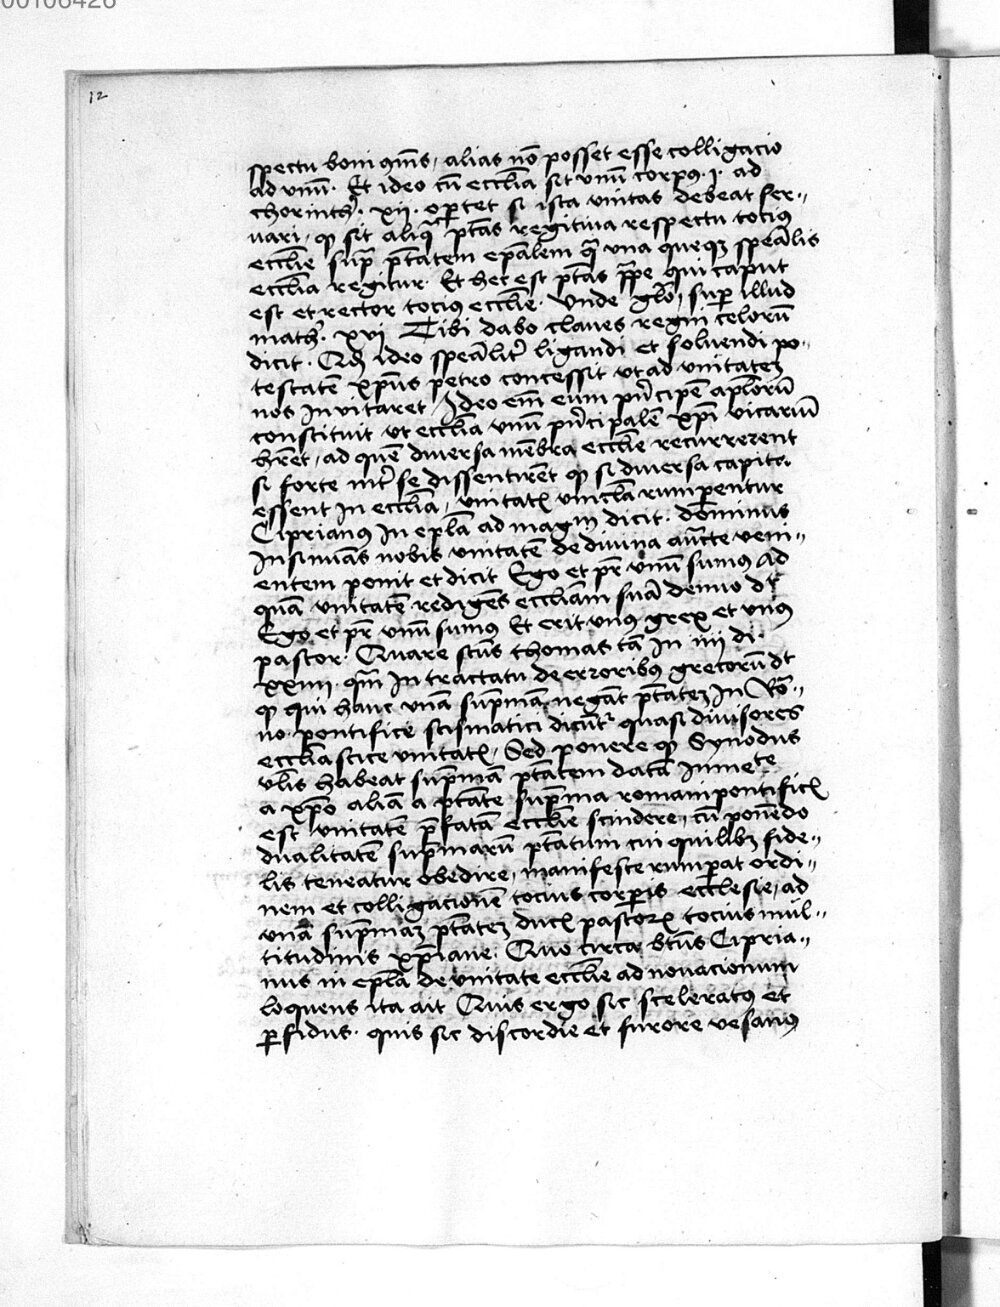 00106426
12
spectu boni cōīs, alias nō posset esse colligacio
ad vnū. Et ideo cū eccl̄ia sit vnū corpus .i. ad
chorinth̄. xii. oportet si ista vnitas debeat ser-
uari, qp sit aliq̄ ptās regitiua respectu tocius
eccl̄ie supͣ ptātem ep̄alem qͣ vna queqz speālis
eccl̄ia regitur. Et hec est ptās ppe qui caput
est et rector tocius eccl̄ie. Vnde glō, sup illud
math̄. xvi Tibi dabo claues regni celorū
dicit. Qd ideo speālit̄ ligandi et soluendi po-
testatē xp̄us petro concessit vt ad vnitatez
nos Inuitaret Ideo em̄ eum pn̄cipē ap̄lorū
constituit vt eccl̄ia vnū pn̄cipalē xp̄i vicariū
hr̄et, ad quē diuersa mēbra eccl̄ie recurrerent
si forte int̄ se dissentirēt qp si diuersa capita
essent In eccl̄ia, vnitatis vincl̄a rumperentur
Ciprianus In ep̄la ad magnū dicit. dominus
Insinuās nobis vnitatē de diuina auc̄te veni-
entem ponit et dicit Ego et pr̄ vnū sumus Ad
quā vnitatē redigēs eccl̄iam suā denuo dt
Ego et pr̄ vnū sumus Et erit vnus grex et vnus
pastor. Quare sc̄us thomas tā In iiii di.
xxiiii. qm̄ In tractatu de erroribus grecorū dt
qp qui hanc vnā sup̄mam negāt ptātez In Ro-
no pontifice scismatici dicūt̄ quasi diuisores
eccl̄iastice vnitatis, Sed ponere qp Synodus
vl̄is habeat sup̄mā ptātem datā Inmēte
a xp̄o aliā a ptāte sup̄ma romani pontificis
est vnitatē p̄fatā eccl̄ie scindere, cū ponēdo
dualitatē sup̄marū ptātum cui quilibz fide-
lis teneatur obedire, manifeste rumpat ordi-
nem et colligationē tocius corpis ecclesie, ad
vnā sup̄maz ptātez ducis pastoris tocius mul-
titudinis xp̄iane. Quo circa btūs Cipria-
nus in ep̄la de vnitate eccl̄ie ad nouacionum
loquens ita ait Quis ergo sic sceleratus et
pfidus. quis sic discordie et furore vesanus